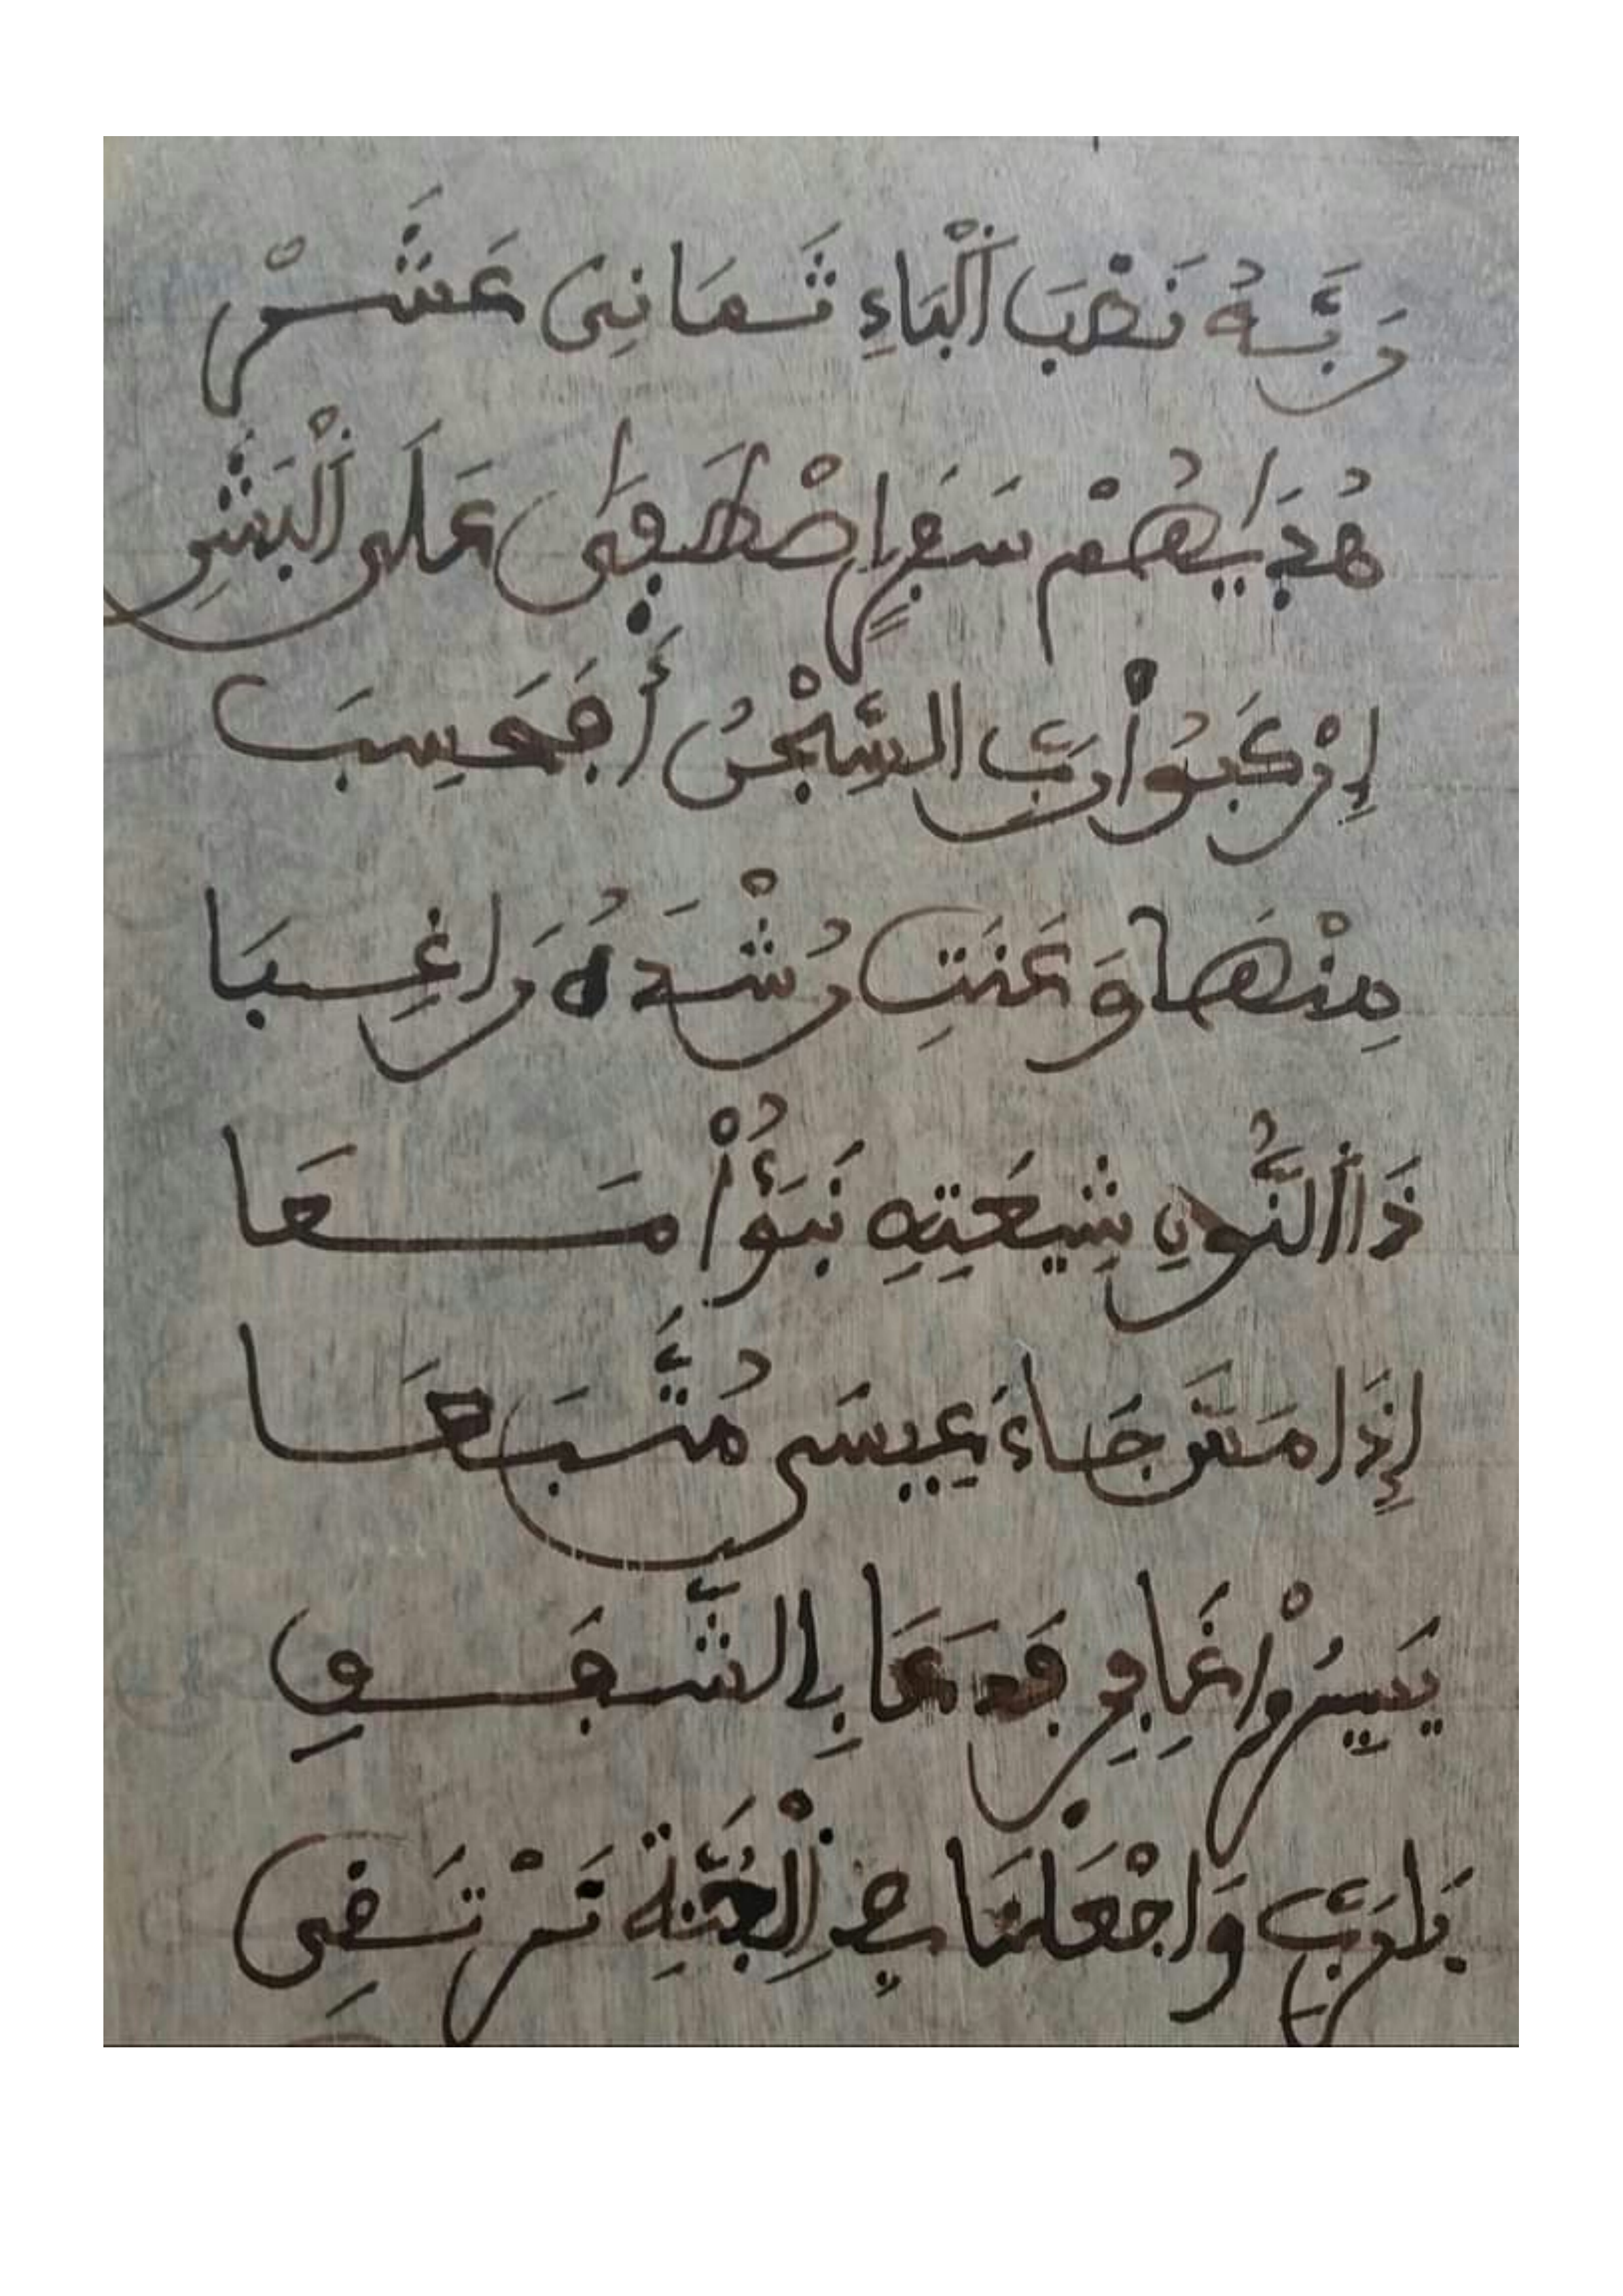 رَبَّهُ نَصْبَ اَلْبَاءِ ثَمَانِى عَشَرْ
هُدَايهُمْ سَفَرٍ اِصْطَفَى عَلَى اَلْبَشَرِ
اِرْكَبُواْ رَبِّ السِّجْنُ أَفَحَسِبَ
مِنْهَا وَعَنَتِ رُشْدَهُ رَاغِبَا
ذَا اَلنُّونِ شِيعَتِهِ نَبَؤُاْ مَعَا
إِذَا مَسَّ جَاءَ عِيسَى مُتَّبَعَا
يَسِيرُواْ غَافِرِ فَدَعَا بِالشَّفَقِ
بَلَ رَبِّ وَاجْعَلْنَا فِے اِلْجَنَّةِ نَرْتَقِى